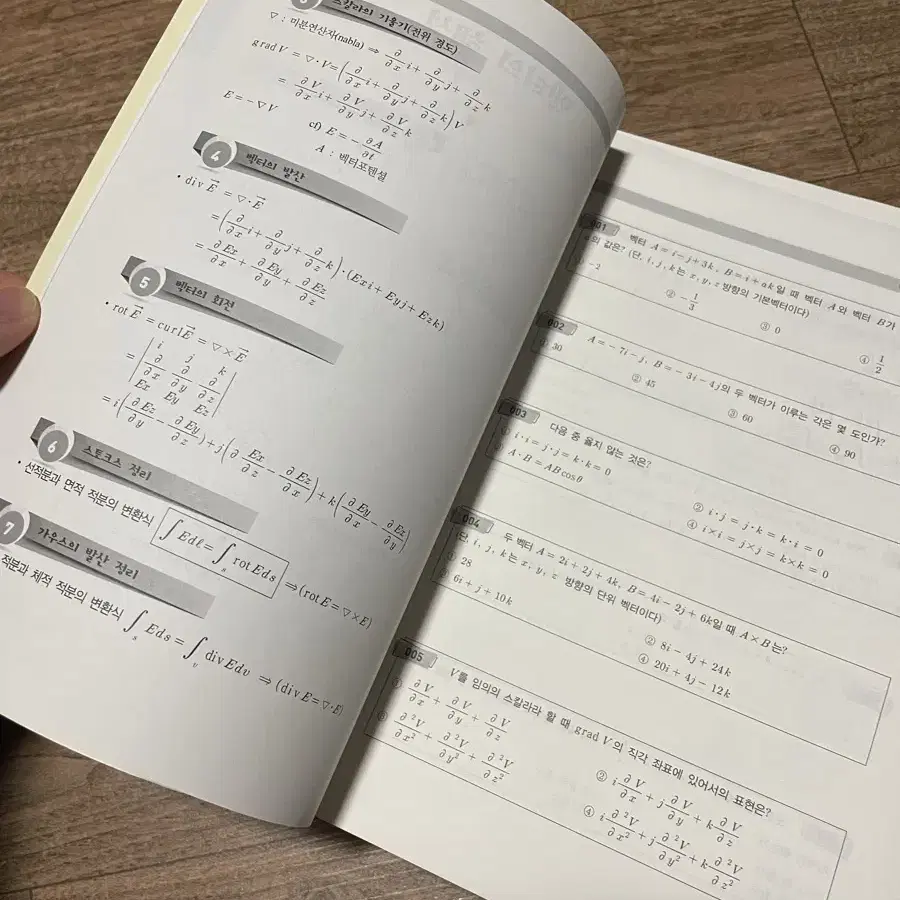 스칼라의 기울기(전위 경도)
▽ : 미분연산자(nabla) ⇒ ∂/∂x i + ∂/∂y j + ∂/∂z k
grad V = ▽·V = (∂/∂x i + ∂/∂y j + ∂/∂z k) V
= ∂V/∂x i + ∂V/∂y j + ∂V/∂z k
E = -▽V
cf) E = -∂A/∂t
A : 벡터포텐셜
4 벡터의 발산
• div E⃗ = ▽·E⃗
= (∂/∂x i + ∂/∂y j + ∂/∂z k)·(Exi + Eyj + Ezk)
= ∂Ex/∂x + ∂Ey/∂y + ∂Ez/∂z
5 벡터의 회전
• rot E⃗ = curl E⃗ = ▽×E⃗
= | i j k |
| ∂/∂x ∂/∂y ∂/∂z |
| Ex Ey Ez |
= i(∂Ez/∂y - ∂Ey/∂z) + j(∂Ex/∂z - ∂Ez/∂x) + k(∂Ey/∂x - ∂Ex/∂y)
6 스토크스 정리
• 선적분과 면적 적분의 변환식 ∫Edℓ = ∫s rot Eds ⇒ (rot E = ▽×E)
7 가우스의 발산 정리
적분과 체적 적분의 변환식 ∫s Eds = ∫v div Edv ⇒ (div E = ▽·E)
001 벡터 A = i - j + 3k, B = i + ak일 때 벡터 A와 벡터 B가
의 값은? (단, i, j, k는 x, y, z 방향의 기본벡터이다)
① -2
② -1/3
③ 0
④ 1/2
002 A = -7i - j, B = -3i - 4j의 두 벡터가 이루는 각은 몇 도인가?
① 30
② 45
③ 60
④ 90
003 다음 중 옳지 않는 것은?
① i·i = j·j = k·k = 0
② i·j = j·k = k·i = 0
A·B = AB cosθ
④ i×i = j×j = k×k = 0
004 두 벡터 A = 2i + 2j + 4k, B = 4i - 2j + 6k일 때 A×B는?
(단, i, j, k는 x, y, z 방향의 단위 벡터이다)
① 28
② 8i - 4j + 24k
③ 6i + j + 10k
④ 20i + 4j - 12k
005 V를 임의의 스칼라라 할 때 grad V의 직각 좌표에 있어서의 표현은?
① ∂V/∂x + ∂V/∂y + ∂V/∂z
② i ∂V/∂x + j ∂V/∂y + k ∂V/∂z
③ ∂²V/∂x² + ∂²V/∂y² + ∂²V/∂z²
④ i ∂²V/∂x² + j ∂²V/∂y² + k ∂²V/∂z²